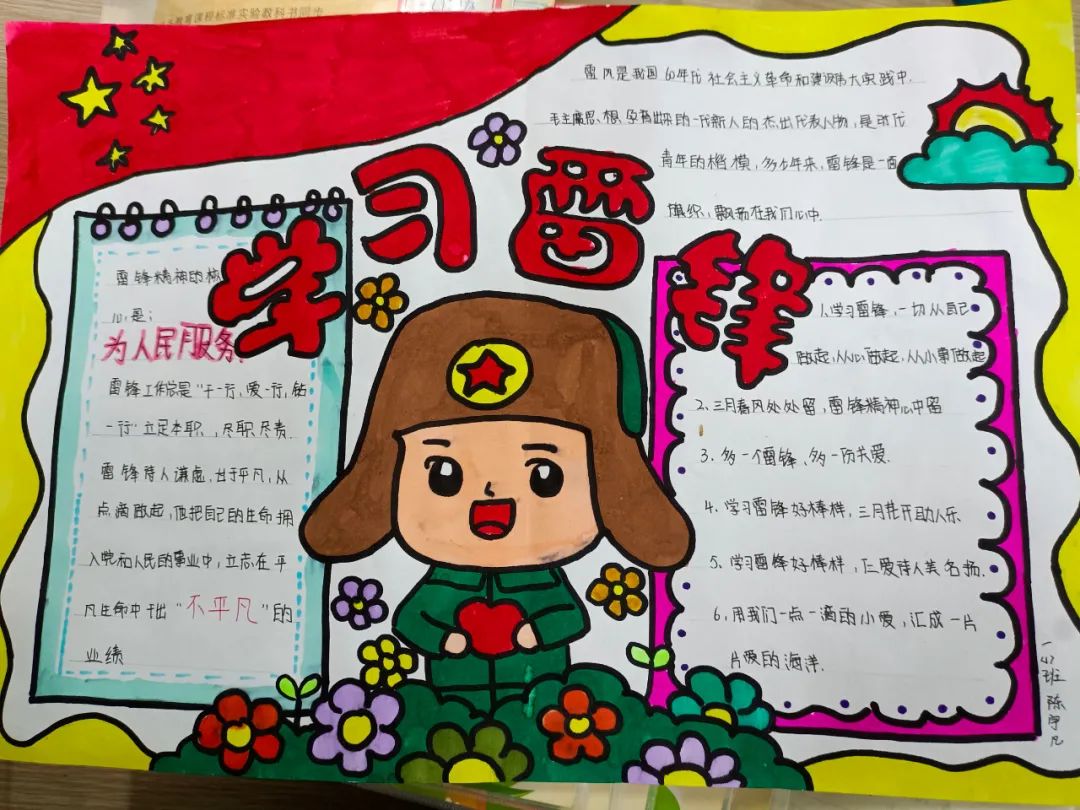 教育课程标准实验教科书同步
学习雷锋
雷风是我国60年代社会主义革命和建设伟大实践中
毛主席思想孕育出来的一代新人的杰出代表人物,是时代
青年的楷模,多少年来,雷锋是一面
旗织,飘扬在我们心中.
雷锋精神的核
心是:
为人民服务.
雷锋工作总是"干一行,爱一行,钻
一行"立足本职,尽职尽责
雷锋待人谦虚,出于平凡,从
点滴做起,他把自己的生命拥
入党和人民的事业中,立志在平
凡生命中干出"不平凡"的
业绩
人学习雷锋,一切从自己
做起,从心做起,从小事做起
2、三月春风处处留,雷锋精神心中留
3、多一个雷锋、多一份关爱.
4、学习雷锋好棒样,三月花开助人乐
5、学习雷锋好棒样,仁爱待人美名扬.
6、用我们一点一滴的小爱,汇成一片
片爱的海洋.
一47班 陈宇凡